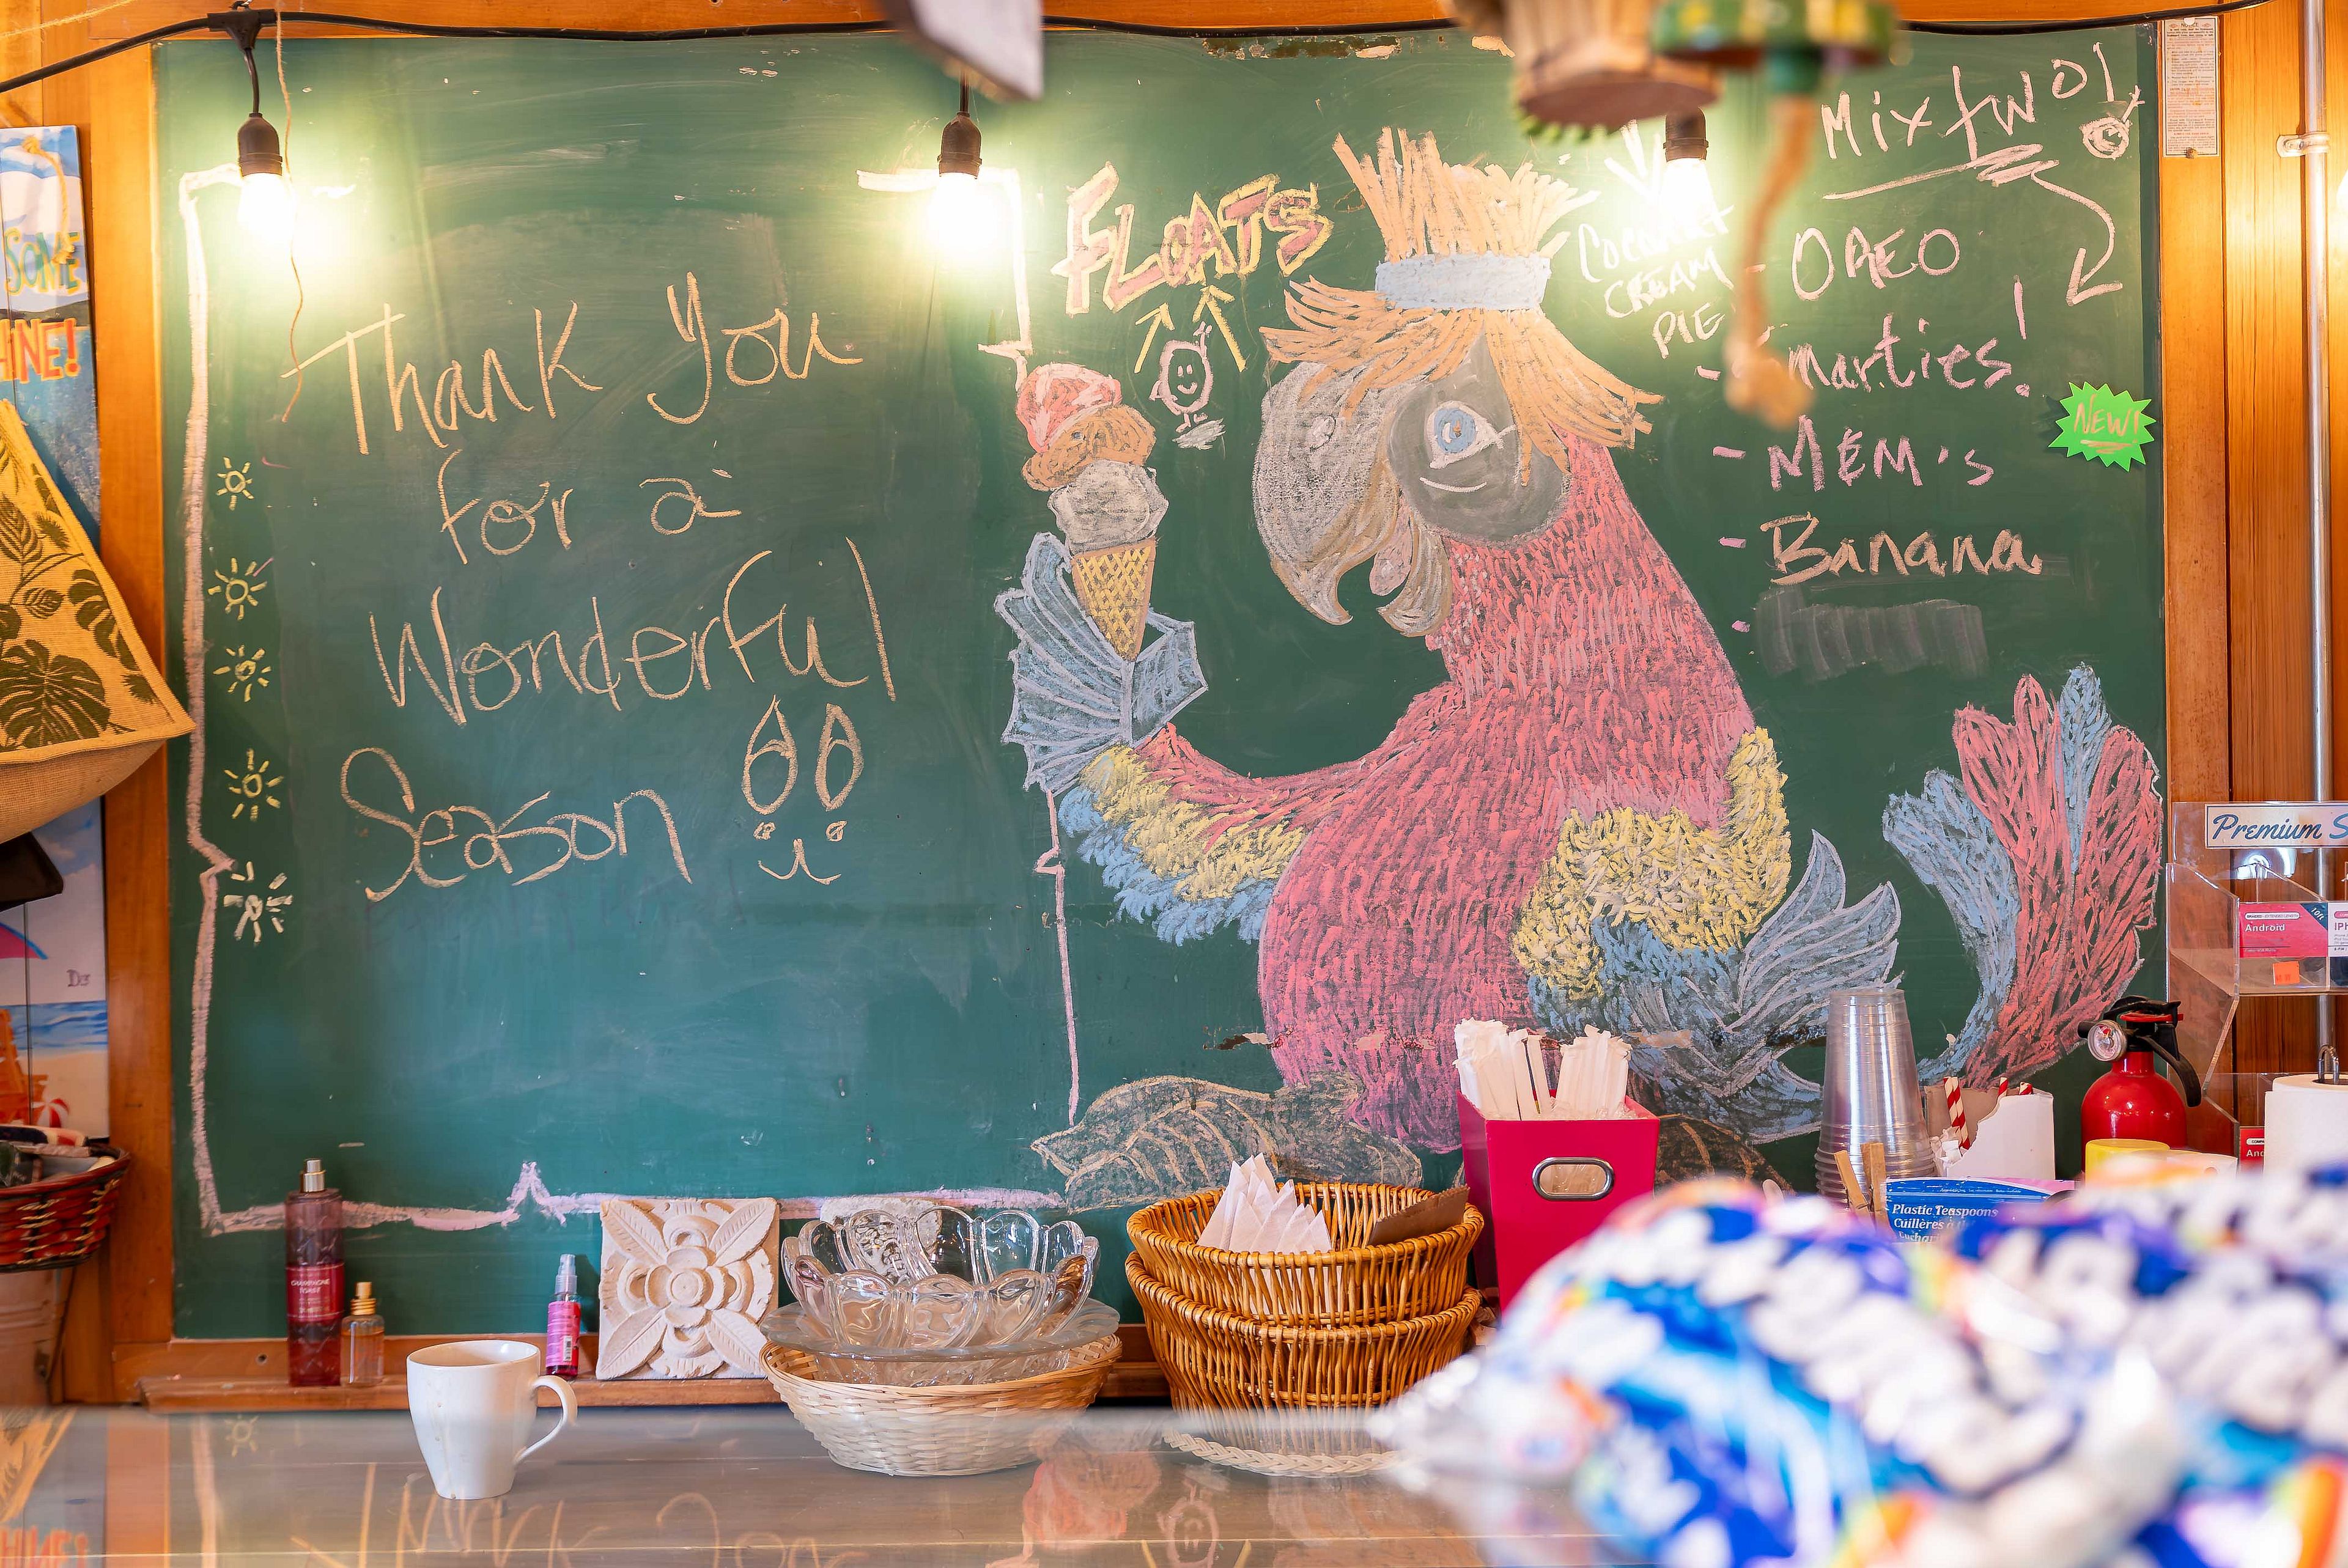 Thank You
for a
Wonderful
Season
FLOATS
COCONUT
CREAM
PIE
Mix two!
- OREO
- Smarties!
- M&M's
- Banana
NEW!
SOME
HINE!
Premium S
Android
Plastic Teaspoons